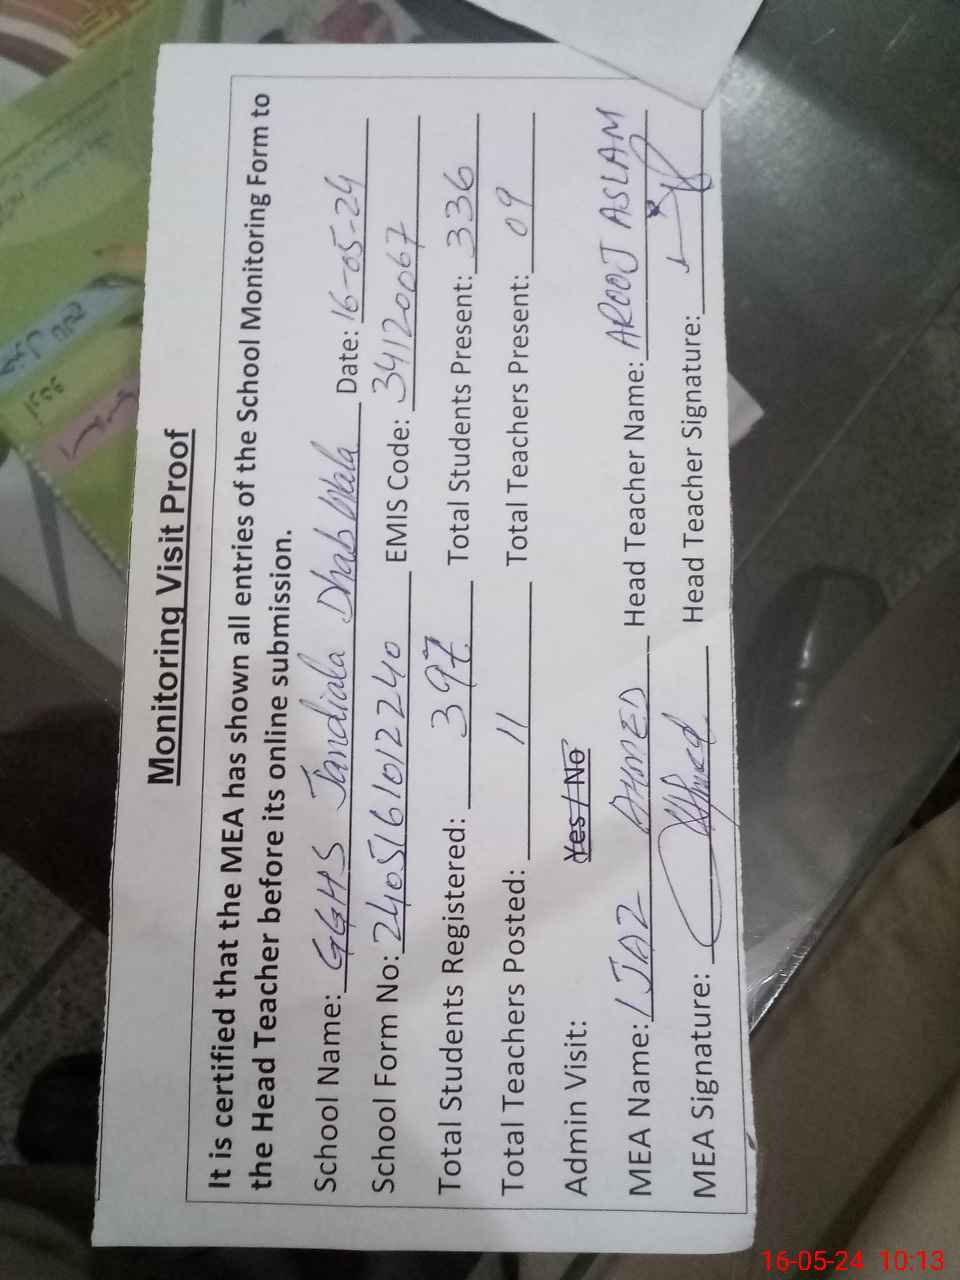 Monitoring Visit Proof
It is certified that the MEA has shown all entries of the School Monitoring Form to
the Head Teacher before its online submission.
School Name: GGHS Jandiala Dhab Wala Date: 16-05-24
School Form No: 2405161012240 EMIS Code: 34120067
Total Students Registered: 397 Total Students Present: 336
Total Teachers Posted: 11 Total Teachers Present: 09
Admin Visit: Yes / No
MEA Name: IJAZ AHMED Head Teacher Name: AROOJ ASLAM
MEA Signature: Head Teacher Signature:
16-05-24 10:13